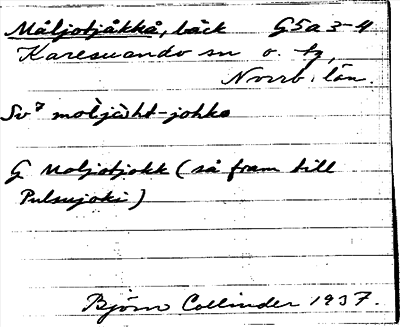 Måljotjåkkå, bäck G5a3-4
Karesuando sn o. tg,
Norrb. län.
Sv? moljòht-johka
G Moljotjokk (så fram till
Pulsujoki)
Björn Collinder 1937.